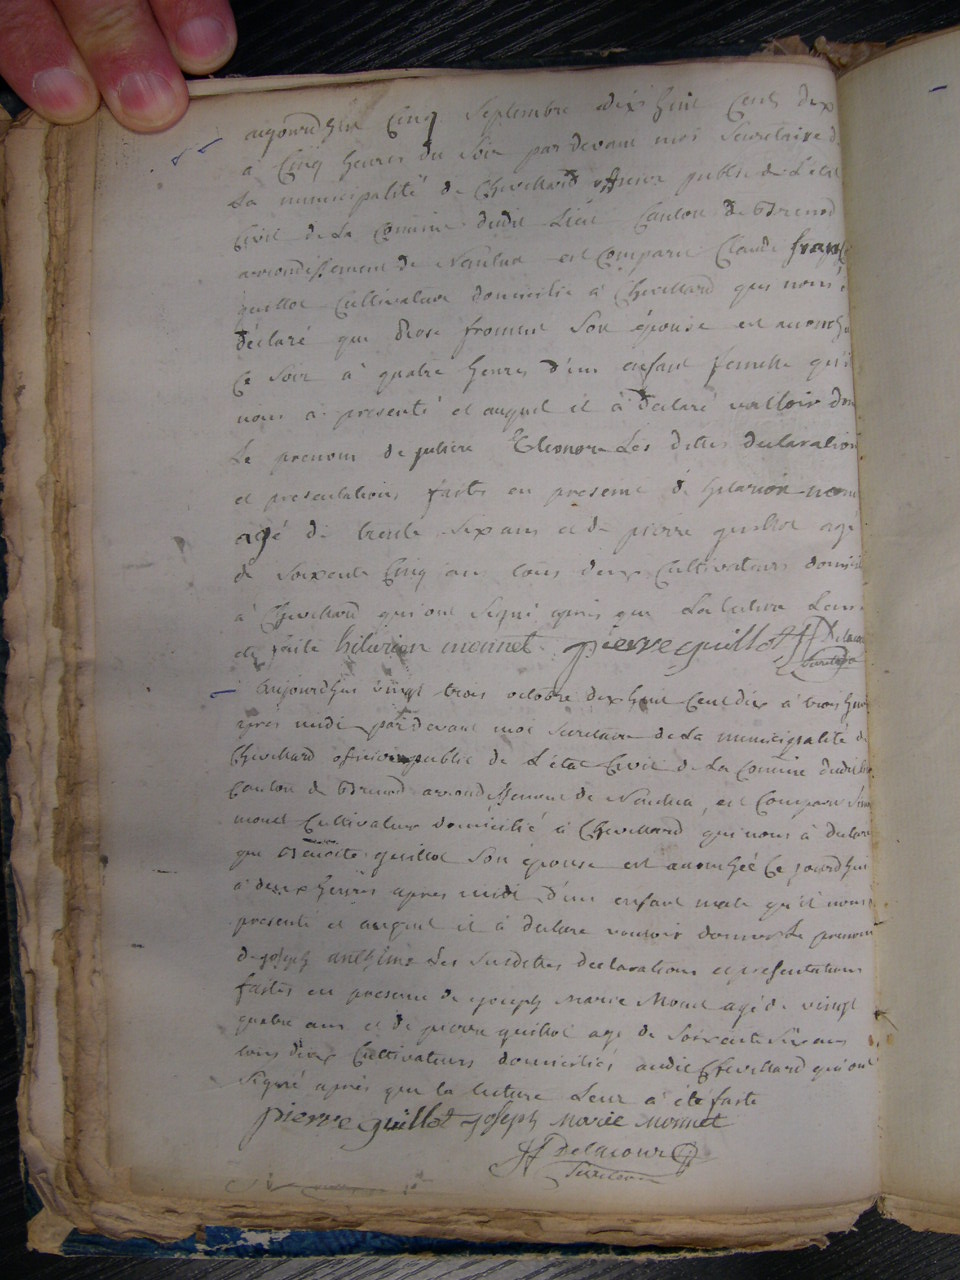 aujourdhui Cinq Septembre dix huit Cents dix
à Cinq heures du Soir par devant moi Secretaire d
La municipalité de Chevillard officier public de L'état
Civil de La Comune dudit Lieu Canton de Brenod
arrondissement de Nantua est Comparu Claude franç
guillot Cultivateur domicilié à Chevillard qui nous
déclaré que froment Son épouse est accouché
Ce Soir à quatre heures d'un enfant femelle qu'il
nous a presenté et auquel il à declaré vouloir don
Le prenom de juliene Eleonore Les dittes declaration
et presentations faites en presence de hilarion monn
agé de trente Six ans et de pierre guillot agé
de Soixente Cinq an tous deux Cultivateurs domici
à Chevillard qui ont Signé apres que La lecture Leur
été faite hilarion monnet pierre guillot Delacou
Secretaire
aujourdhui vingt trois octobre dix huit Cent dix à trois heur
après midi par devant moi Secretaire de La municipalité de
Chevillard officier public de L'état Civil de La Comune dudit lieu
Canton de Brenod arrondissement de Nantua, est Comparu
monet Cultivateur domicilié à Chevillard qui nous à declare
que guillot Son épouse est accouchéé Ce jourdhui
à deux heures apres midi d'un enfant male qu'il nous
presenté et auquel il à declare vouloir donner Le prenom
de joseph anthime Les Susdittes declarations et presentations
faites en presence de joseph Marie Monet agé de vingt
quatre ans et de pierre guillot age de Soixante Six ans
tous deux Cultivateurs domiciliés audit Chevillard qui ont
Signé après que la lecture Leur à été faite
pierre guillot joseph marie monnet
Delacour
Secretaire